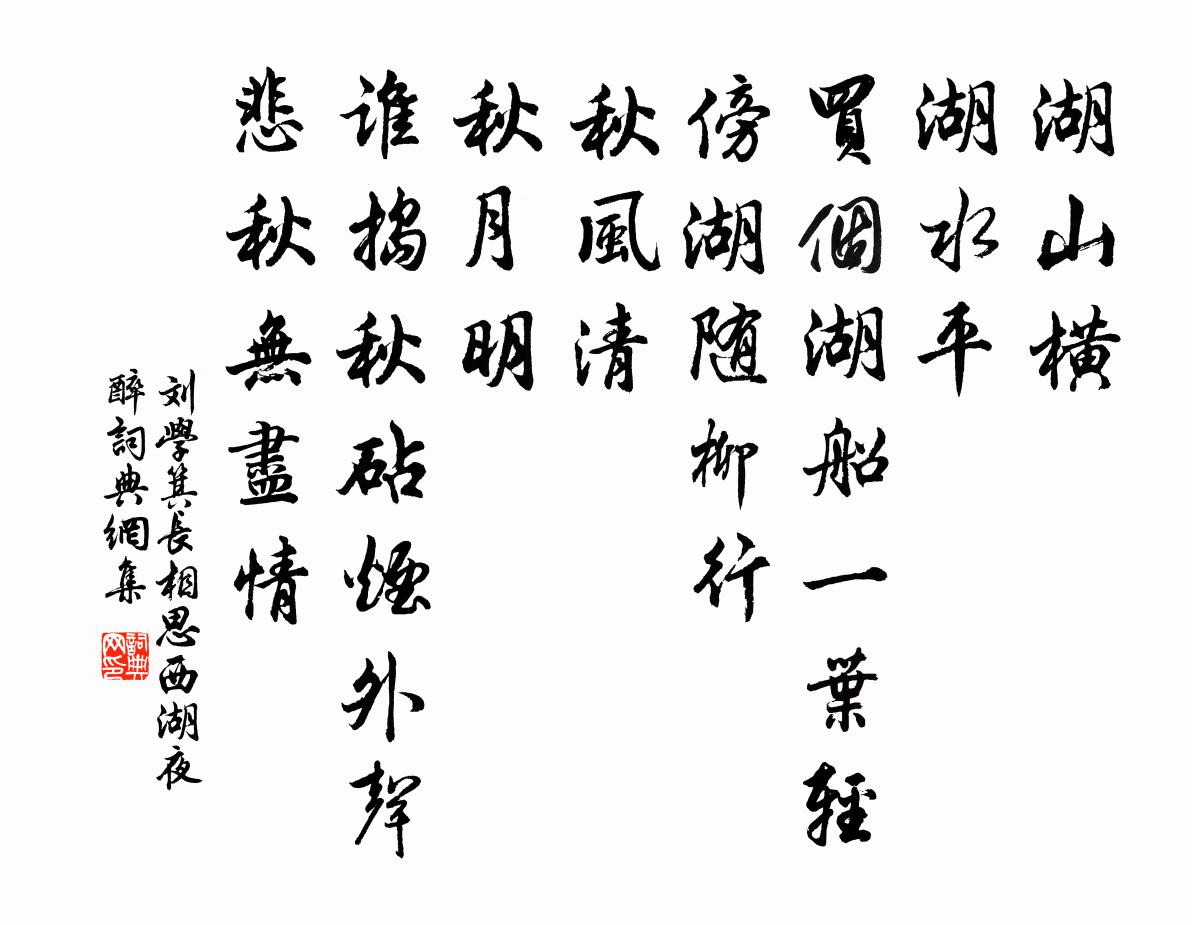 湖山橫
湖水平
買個湖船一葉輕
傍湖随柳行
秋風清
秋月明
谁搗秋砧煙外聲
悲秋無盡情
刘學箕長相思西湖夜
醉詞典網集
詞典网印